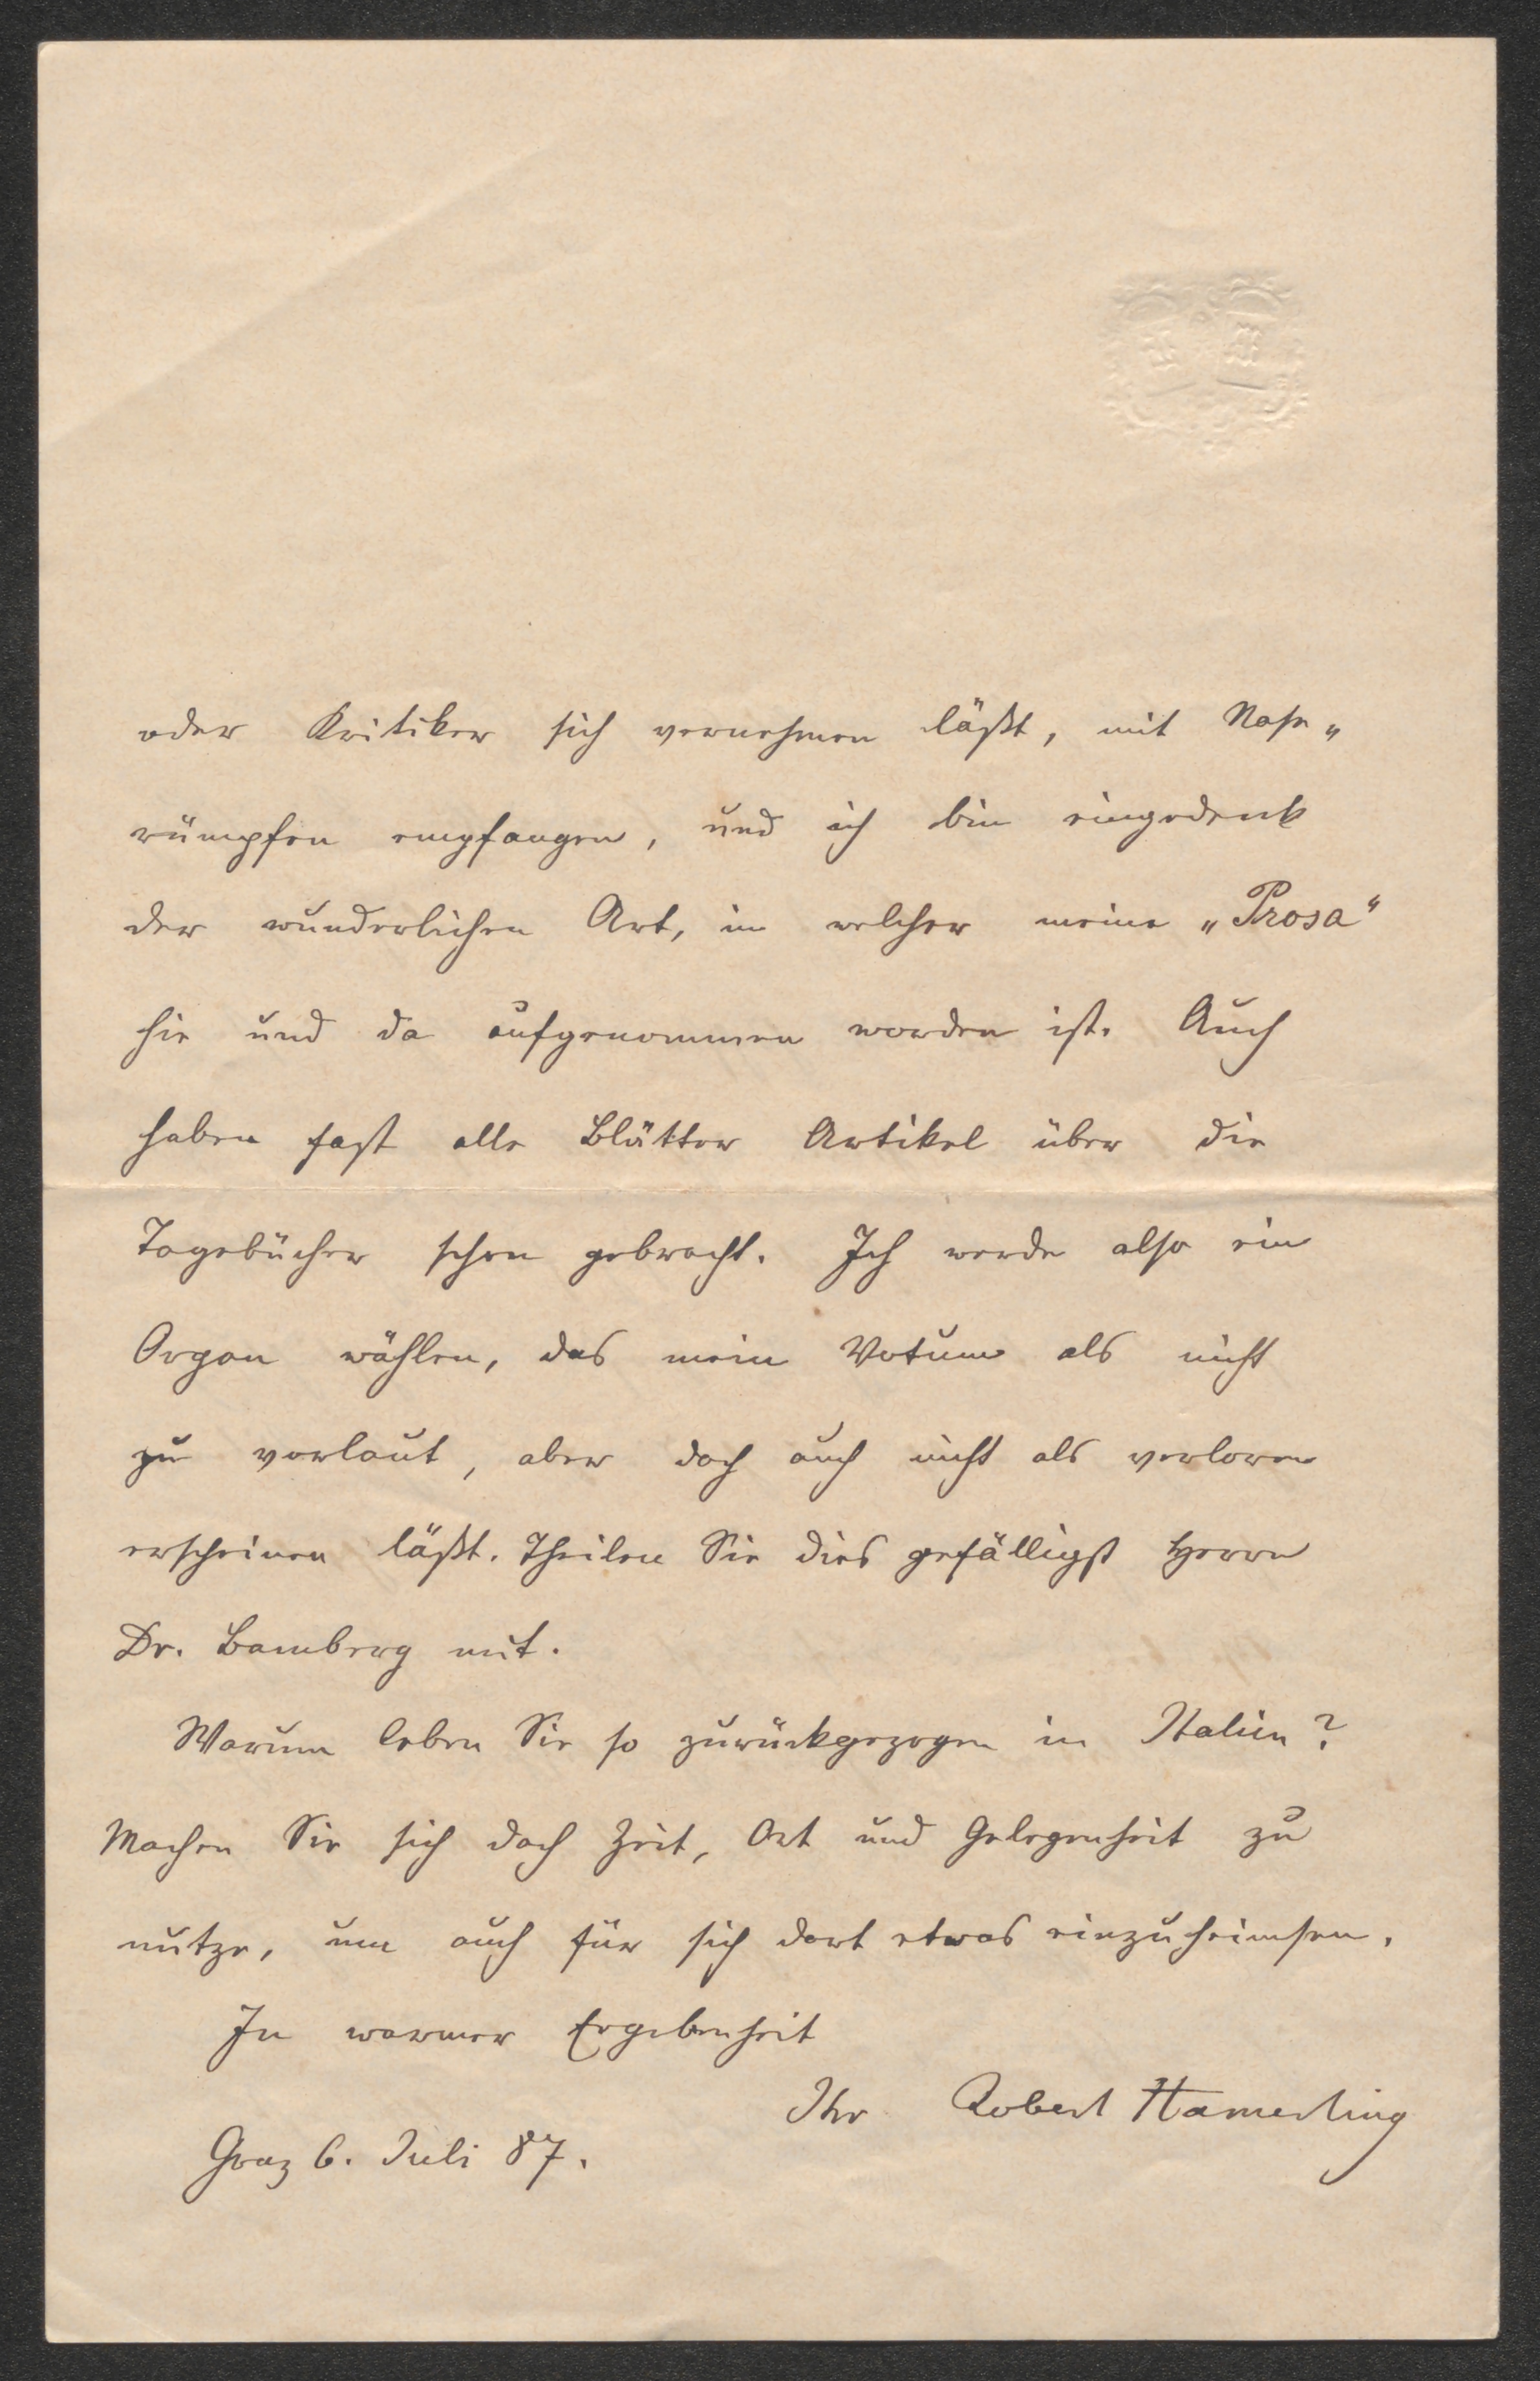 oder Kritiker sich vernehmen läßt, mit Nase„
rümpfen empfangen, und ich bin eingedenk
der wunderlichen Art, in welcher meine „Prosa“
hie und da aufgenommen worden ist. Auch
haben fast alle Blätter Artikel über die
Tagebücher schon gebracht. Ich werde also ein
Organ wählen, das mein Votum als nicht
zu vorlaut, aber doch auch nicht als verloren
erscheinen läßt. Theilen Sie dies gefälligst Herrn
Dr. Bamberg mit.
Warum leben Sie so zurückgezogen in Italien?
Machen Sie sich doch Zeit, Ort und Gelegenheit zu
nutze, um auch für sich dort etwas einzuheimsen.
In warmer Ergebenheit
Ihr Robert Hamerling
Graz 6. Juli 87.